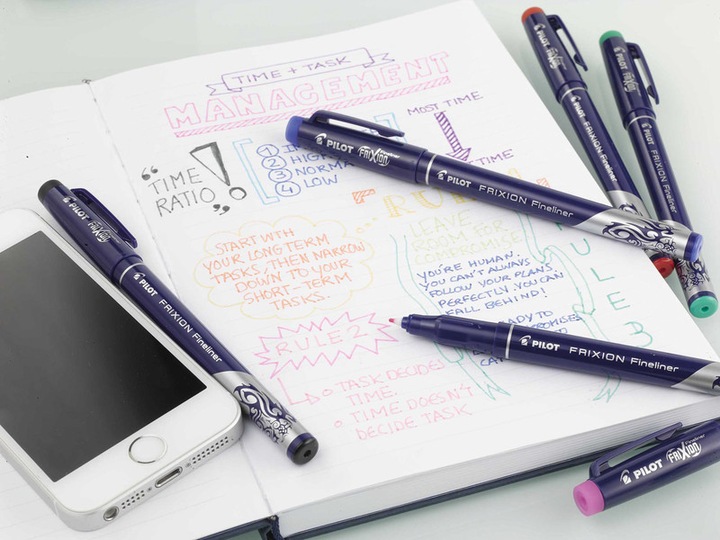 TIME + TASK
MANAGEMENT
MOST TIME
TIME
"TIME
RATIO"
!
1
2 HIGH
3 NORMA
4 LOW
RU
START WTH
YOUR LONG TERM
TASKS, THEN NARROW
DOWN TO YOUR
SHORT-TERM
TASKS.
LEAVE
FOR
YOU'RE HUMAN.
YOU CAN'T ALWAYS
FOLLOW YOUR PLANS.
PERFECTLY, YOU CAN
FALL BEHIND!
ADY TO
RULE 2
TASK DECIDES
TIME.
TIME DOESN'T
DECIDE TASK
ULE 3
PILOT FRIXION Fineliner
PILOT FRIXION Fineliner
PILOT FRIXION Fineliner
PILOT FRIXION Fineliner
PILOT FRIXION Fineliner
PILOT FRIXION Fineliner
PILOT FRIXION Fineliner
PILOT FRIXION Fineliner
PILOT FRIXION Fineliner
PILOT FRIXION